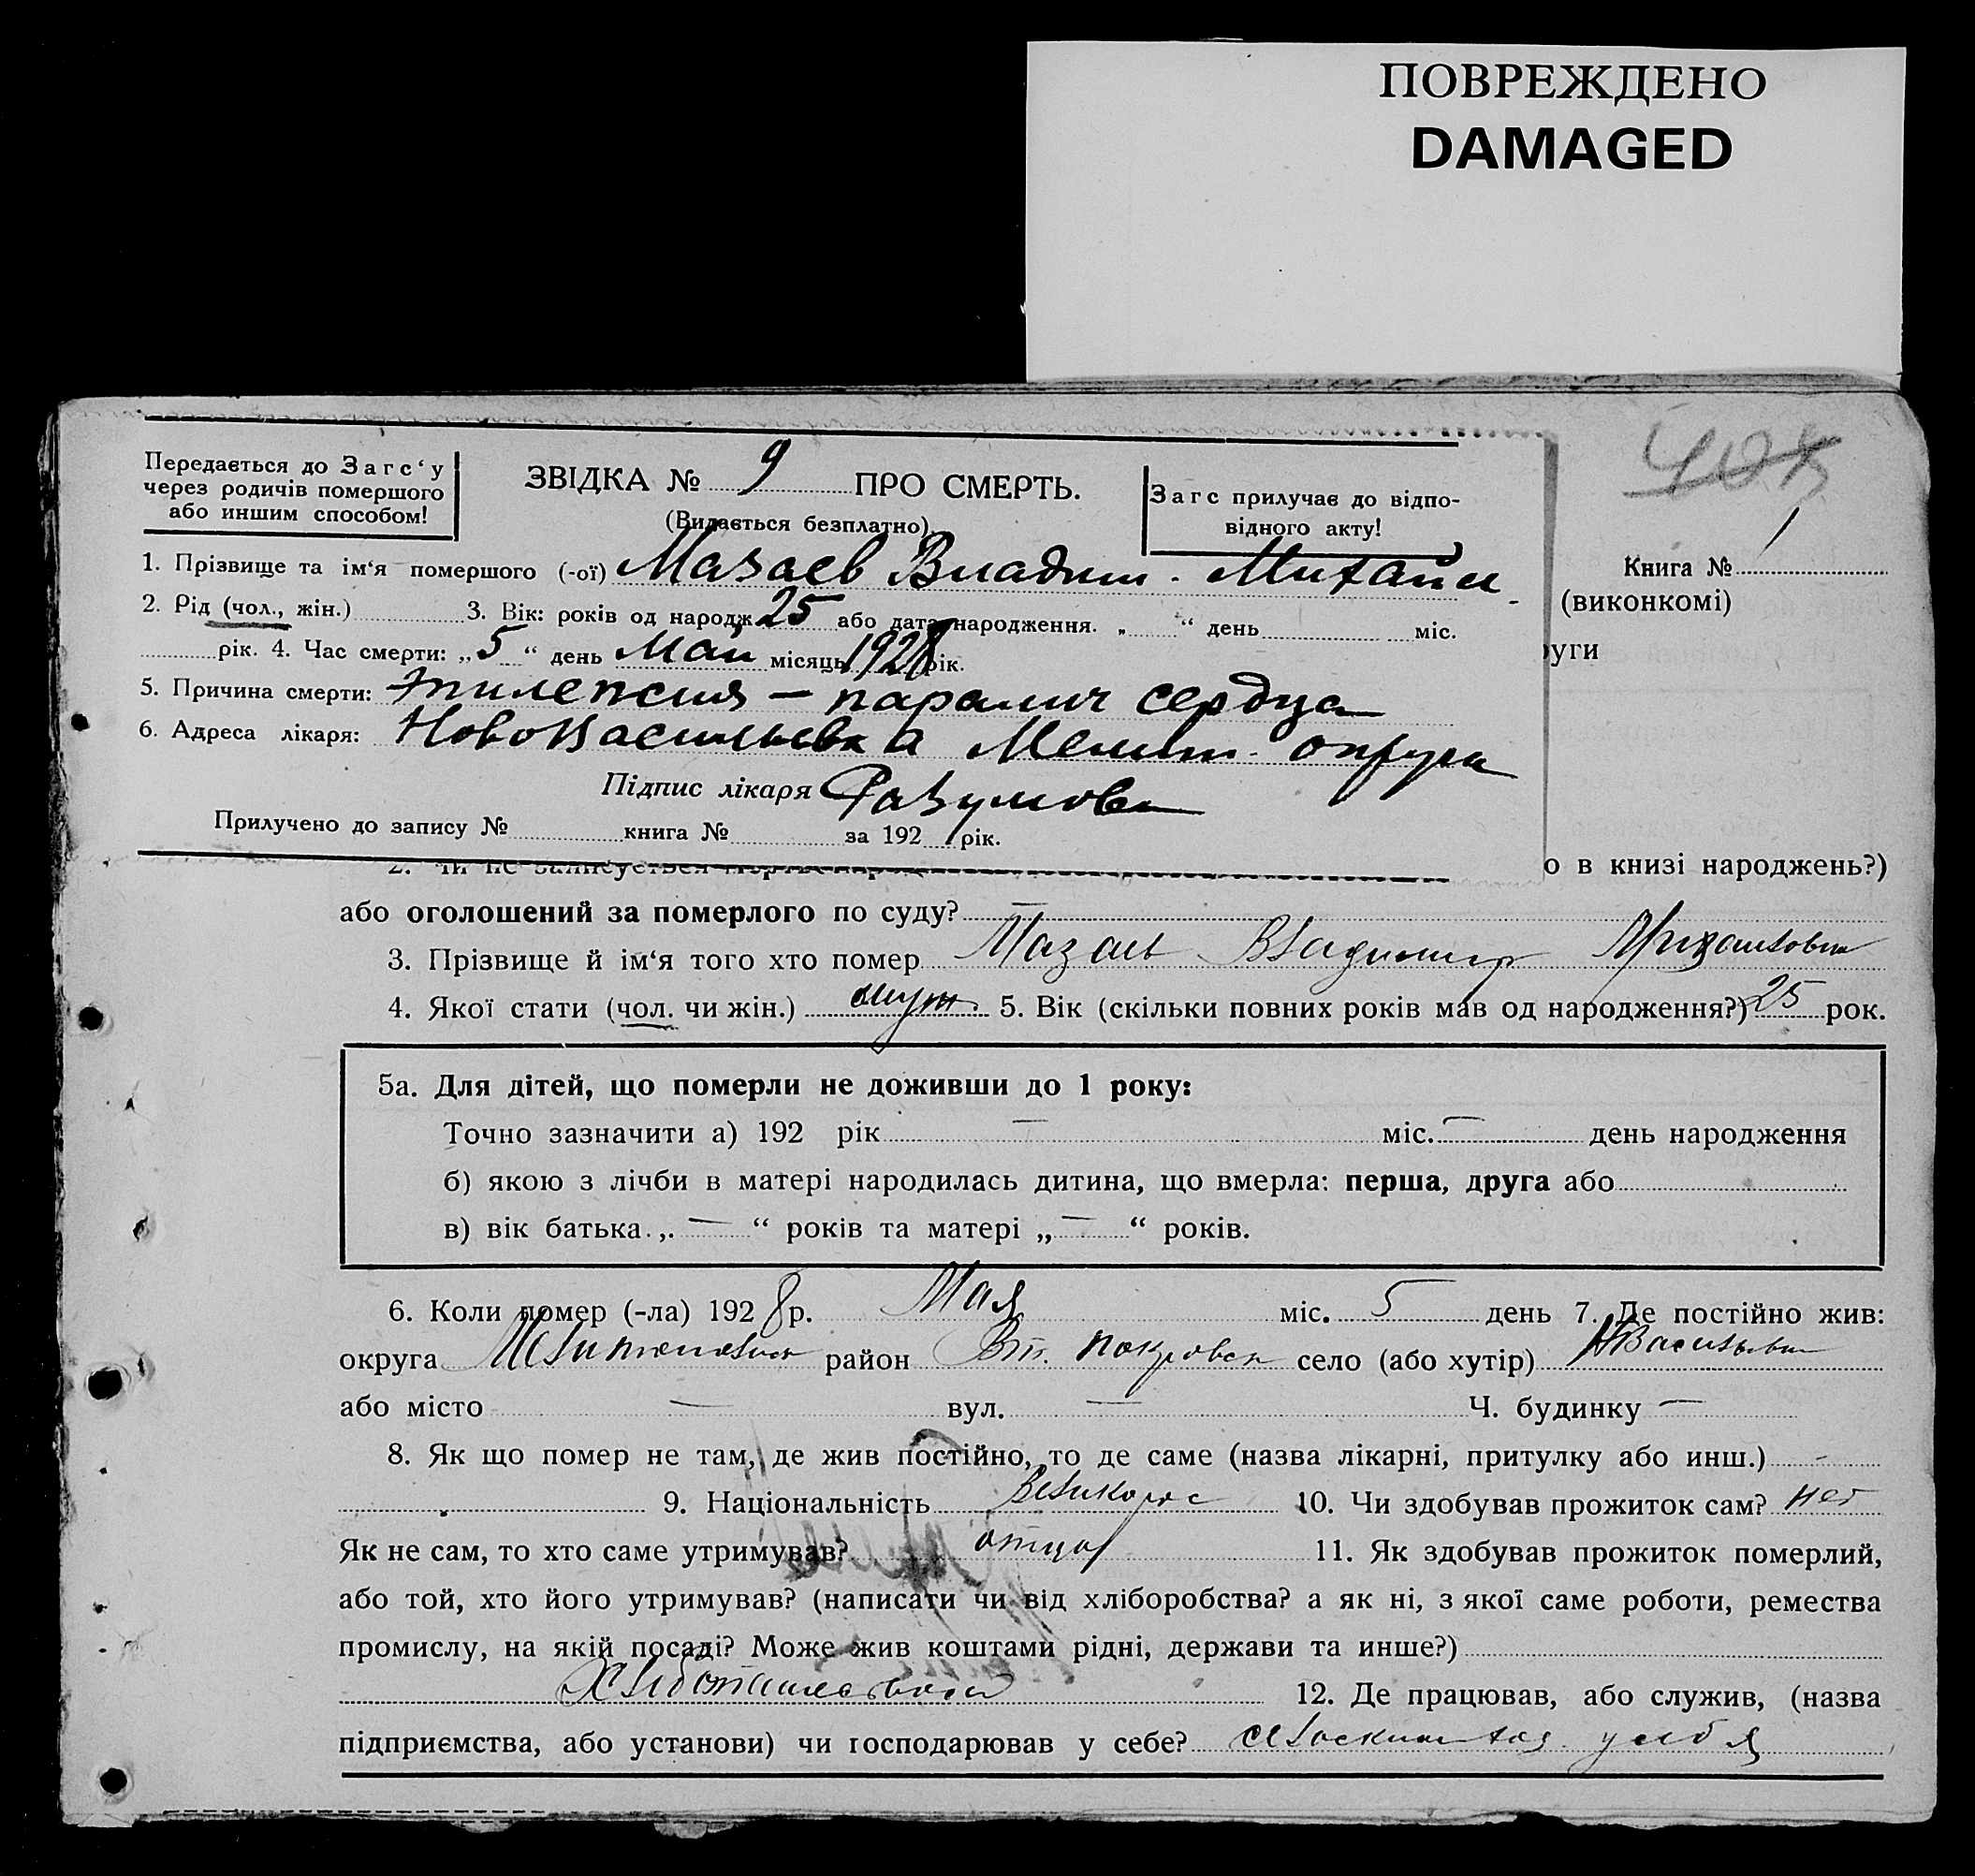 ПОВРЕЖДЕНО
DAMAGED
Передається до Загс‘у
через родичів помершого
або иншим способом!
ЗВІДКА № 9 ПРО СМЕРТЬ.
(Видається безплатно)
Загс прилучає до відпо-
відного акту!
1. Прізвище та ім‘я помершого (-ої) Мазаев Владим. Михайл.
2. Рід (чол., жін.) 3. Вік: років од народж. 25 або дата народження. „ “ день міс.
рік. 4. Час смерти: „5“ день Май місяць 1928 рік.
5. Причина смерти: эпилепсия — паралич сердца
6. Адреса лікаря: Нововасильевка Мелит. округа
Підпис лікаря Разумова
Прилучено до запису № книга № за 192 рік.
Книга № 1
(виконкомі)
руги
о в книзі народжень?)
або оголошений за померлого по суду? —
3. Прізвище й ім‘я того хто помер Мазаев Владимир Михайлович
4. Якої стати (чол. чи жін.) муж. 5. Вік (скільки повних років мав од народження?) 25 рок.
5а. Для дітей, що померли не доживши до 1 року:
Точно зазначити а) 192 рік — міс. — день народження
б) якою з лічби в матері народилась дитина, що вмерла: перша, друга або
в) вік батька „ — “ років та матері „ — “ років.
6. Коли помер (-ла) 1928 р. Мая міс. 5 день 7. Де постійно жив:
округа район Вт. покровск село (або хутір)
або місто — вул. — Ч. будинку —
8. Як що помер не там, де жив постійно, то де саме (назва лікарні, притулку або инш.) -
9. Національність Великорос 10. Чи здобував прожиток сам? нет
Як не сам, то хто саме утримував? отцу 11. Як здобував прожиток померлий,
або той, хто його утримував? (написати чи від хліборобства? а як ні, з якої саме роботи, ремества
промислу, на якій посаді? Може жив коштами рідні, держави та инше?)
12. Де працював, або служив, (назва
підприємства, або установи) чи господарював у себе? у себя